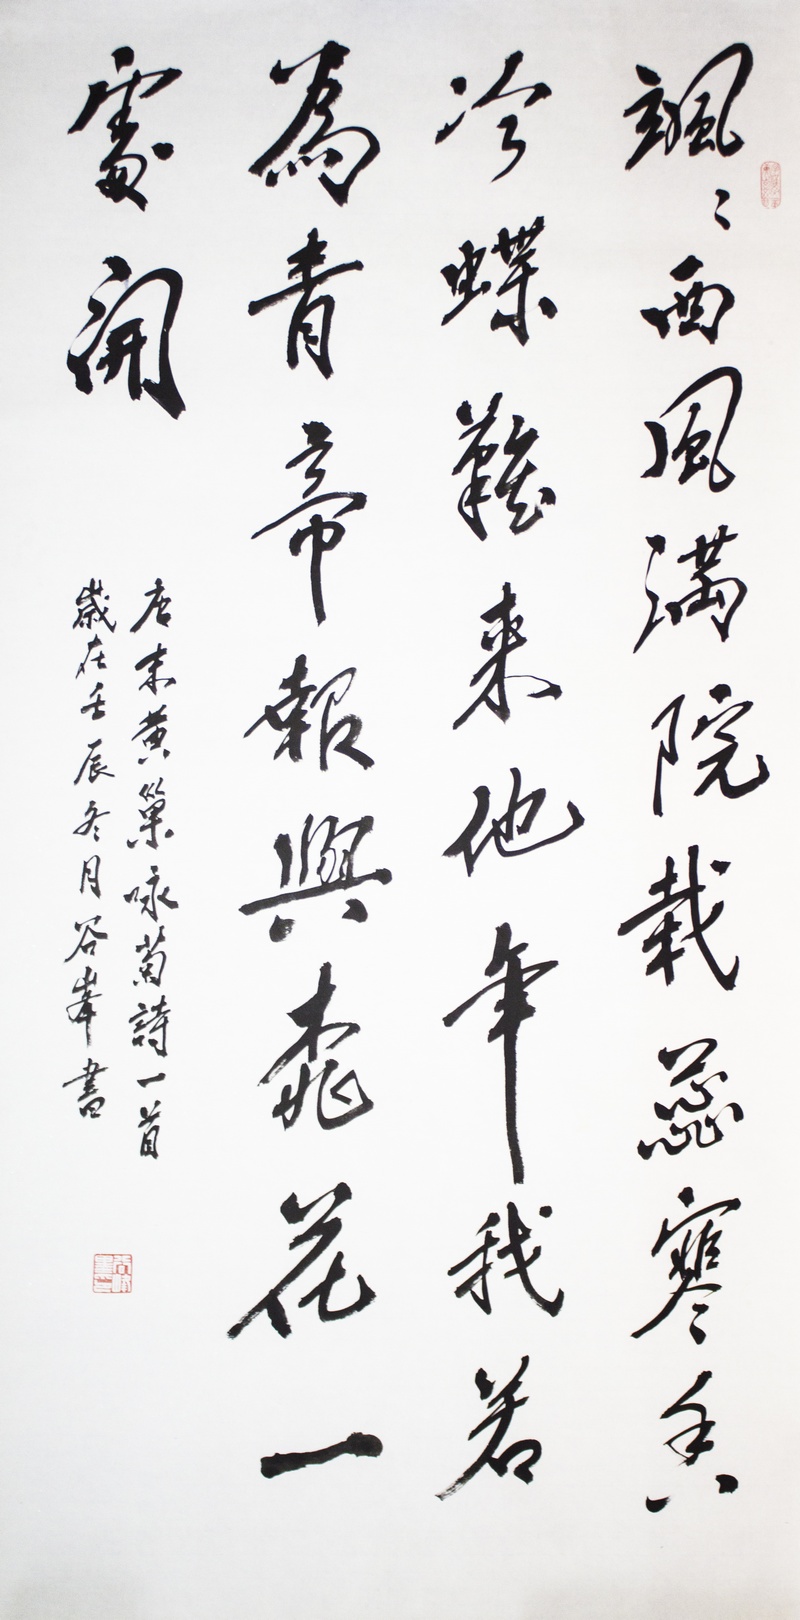 颯〻西風滿院栽蕊寒香
冷蝶難來他年我若
為青帝報與桃花一
處開
唐末黄巢咏菊詩一首
歲在壬辰冬月谷峯書